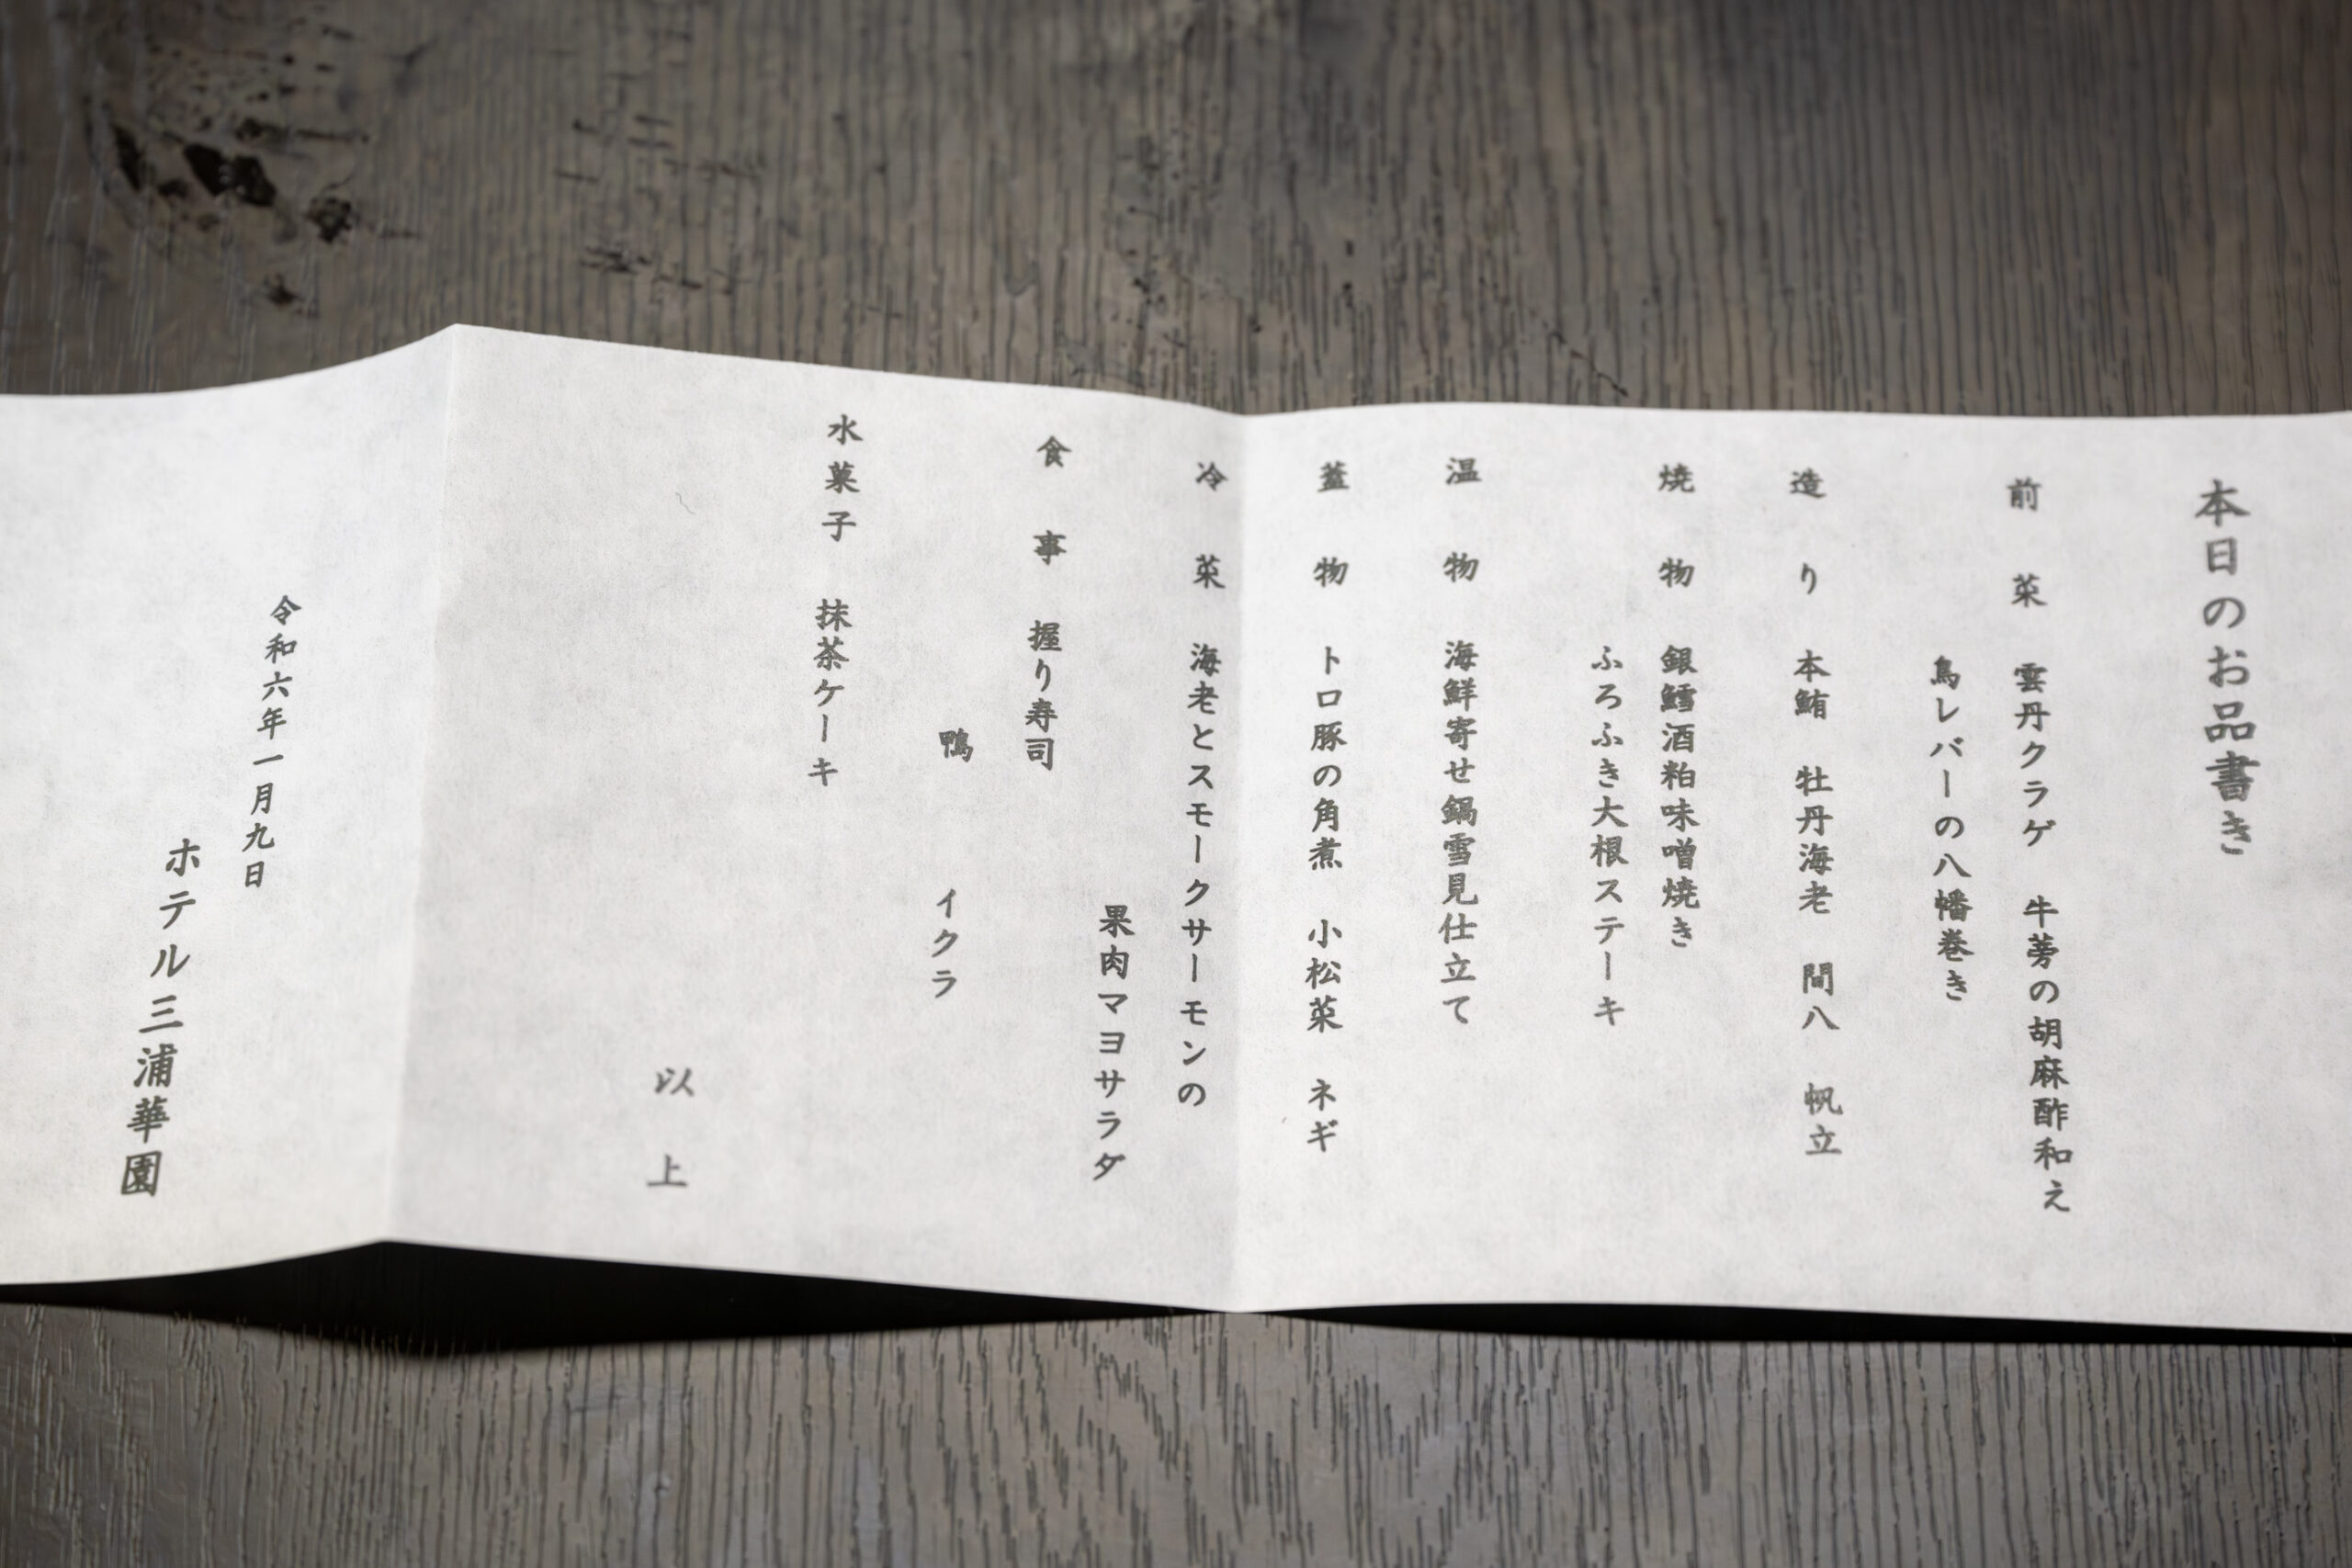 本日のお品書き
前菜　雲丹クラゲ　牛蒡の胡麻酢和え
鳥レバーの八幡巻き
造り　本鮪　牡丹海老　間八　帆立
焼物　銀鱈酒粕味噌焼き
ふろふき大根ステーキ
温物　海鮮寄せ鍋雪見仕立て
蓋物　トロ豚の角煮　小松菜　ネギ
冷菜　海老とスモークサーモンの
果肉マヨサラダ
食事　握り寿司
鴨　イクラ
水菓子　抹茶ケーキ
以上
令和六年一月九日
ホテル三浦華園